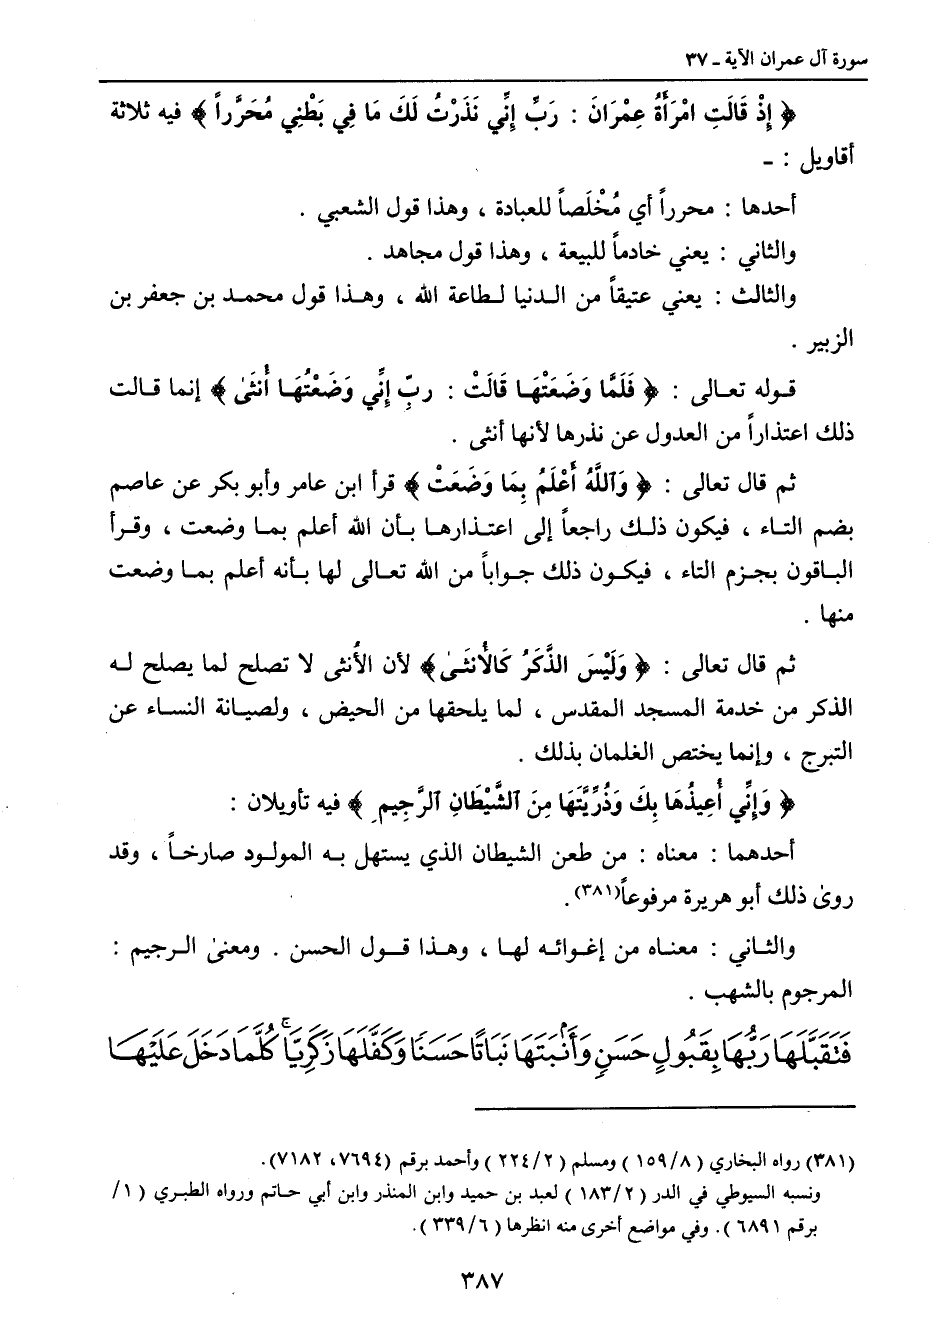 سورة آل عمران الآية ـ ٣٧
﴿ إِذْ قَالَتِ امْرَأَةُ عِمْرَانَ : رَبِّ إِنِّي نَذَرْتُ لَكَ مَا فِي بَطْنِي مُحَرَّراً ﴾ فيه ثلاثة
أقاويل : ـ
أحدها : محرراً أي مُخْلَصاً للعبادة ، وهذا قول الشعبي .
والثاني : يعني خادماً للبيعة ، وهذا قول مجاهد .
والثالث : يعني عتيقاً من الدنيا لطاعة الله ، وهذا قول محمد بن جعفر بن
الزبير .
قوله تعالى : ﴿ فَلَمَّا وَضَعَتْهَا قَالَتْ : ربِّ إِنِّي وَضَعْتُهَا أُنثَىٰ ﴾ إنما قالت
ذلك اعتذاراً من العدول عن نذرها لأنها أنثى .
ثم قال تعالى : ﴿ وَٱللَّهُ أَعْلَمُ بِمَا وَضَعَتْ ﴾ قرأ ابن عامر وأبو بكر عن عاصم
بضم التاء ، فيكون ذلك راجعاً إلى اعتذارها بأن الله أعلم بما وضعت ، وقرأ
الباقون بجزم التاء ، فيكون ذلك جواباً من الله تعالى لها بأنه أعلم بما وضعت
منها .
ثم قال تعالى : ﴿ وَلَيْسَ الذَّكَرُ كَالأُنثَىٰ﴾ لأن الأُنثى لا تصلح لما يصلح له
الذكر من خدمة المسجد المقدس ، لما يلحقها من الحيض ، ولصيانة النساء عن
التبرج ، وإنما يختص الغلمان بذلك .
﴿ وَإِنِّي أُعِيذُهَا بِكَ وَذُرِّيَّتَهَا مِنَ ٱلشَّيْطَانِ ٱلرَّجِيمِ ﴾ فيه تأويلان :
أحدهما : معناه : من طعن الشيطان الذي يستهل به المولود صارخاً ، وقد
روىٰ ذلك أبو هريرة مرفوعاً(٣٨١).
والثاني : معناه من إغوائه لها ، وهذا قول الحسن . ومعنىٰ الرجيم :
المرجوم بالشهب .
فَتَقَبَّلَهَا رَبُّهَا بِقَبُولٍ حَسَنٍ وَأَنۢبَتَهَا نَبَاتًا حَسَنًا وَكَفَّلَهَا زَكَرِيَّا ۖ كُلَّمَا دَخَلَ عَلَيْهَا
(٣٨١) رواه البخاري ( ١٥٩/٨ ) ومسلم ( ٢٢٤/٢ ) وأحمد برقم (٧٦٩٤، ٧١٨٢).
ونسبه السيوطي في الدر ( ١٨٣/٢ ) لعبد بن حميد وابن المنذر وابن أبي حاتم ورواه الطبري ( ١/
برقم ٦٨٩١ ). وفي مواضع أخرى منه انظرها ( ٣٣٩/٦ ).
٣٨٧